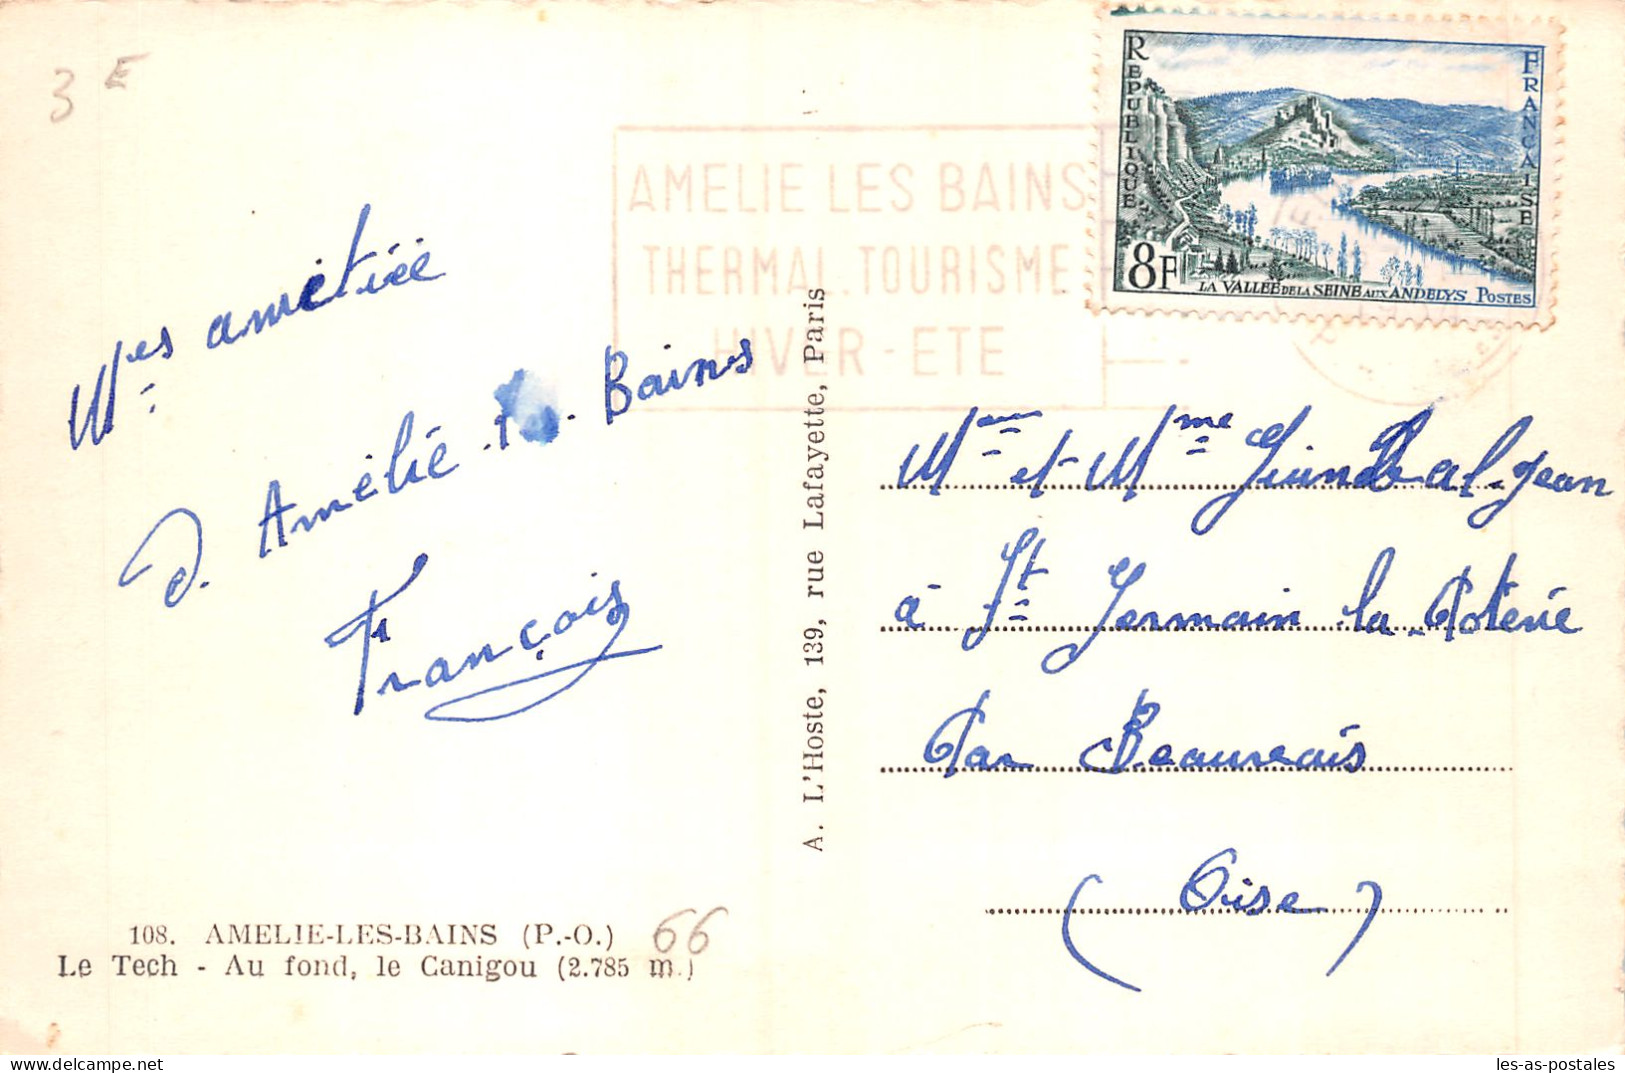 3 E
RÉPUBLIQUE
FRANÇAISE
8F
LA VALLÉE DE LA SEINE AUX ANDELYS POSTES
AMELIE LES BAINS
THERMAL. TOURISME
HIVER - ETE
Mes amitiée
d. Amélie Bains
François
A. L'Hoste, 139, rue Lafayette, Paris
et Mme Jean
à St Germain la Poterie
Par Beauveais
(Oise)
108. AMELIE-LES-BAINS (P.-O.) 66
Le Tech - Au fond, le Canigou (2.785 m.)
delcampe.net
les-as-postales